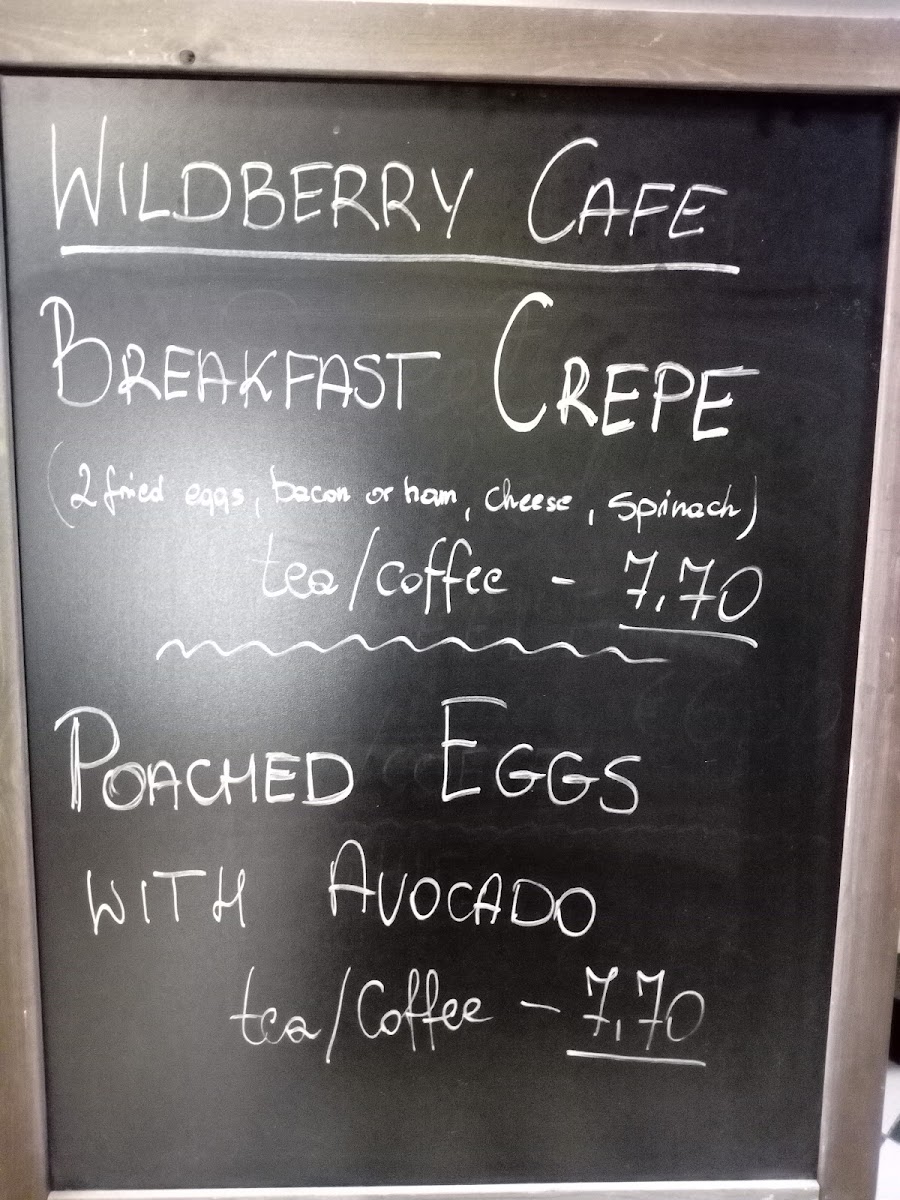 WILDBERRY CAFE
BREAKFAST CREPE
(2 fried eggs, bacon or ham, cheese, spinach)
tea/coffee - 7,70
POACHED EGGS
WITH AVOCADO
tea/Coffee - 7,70